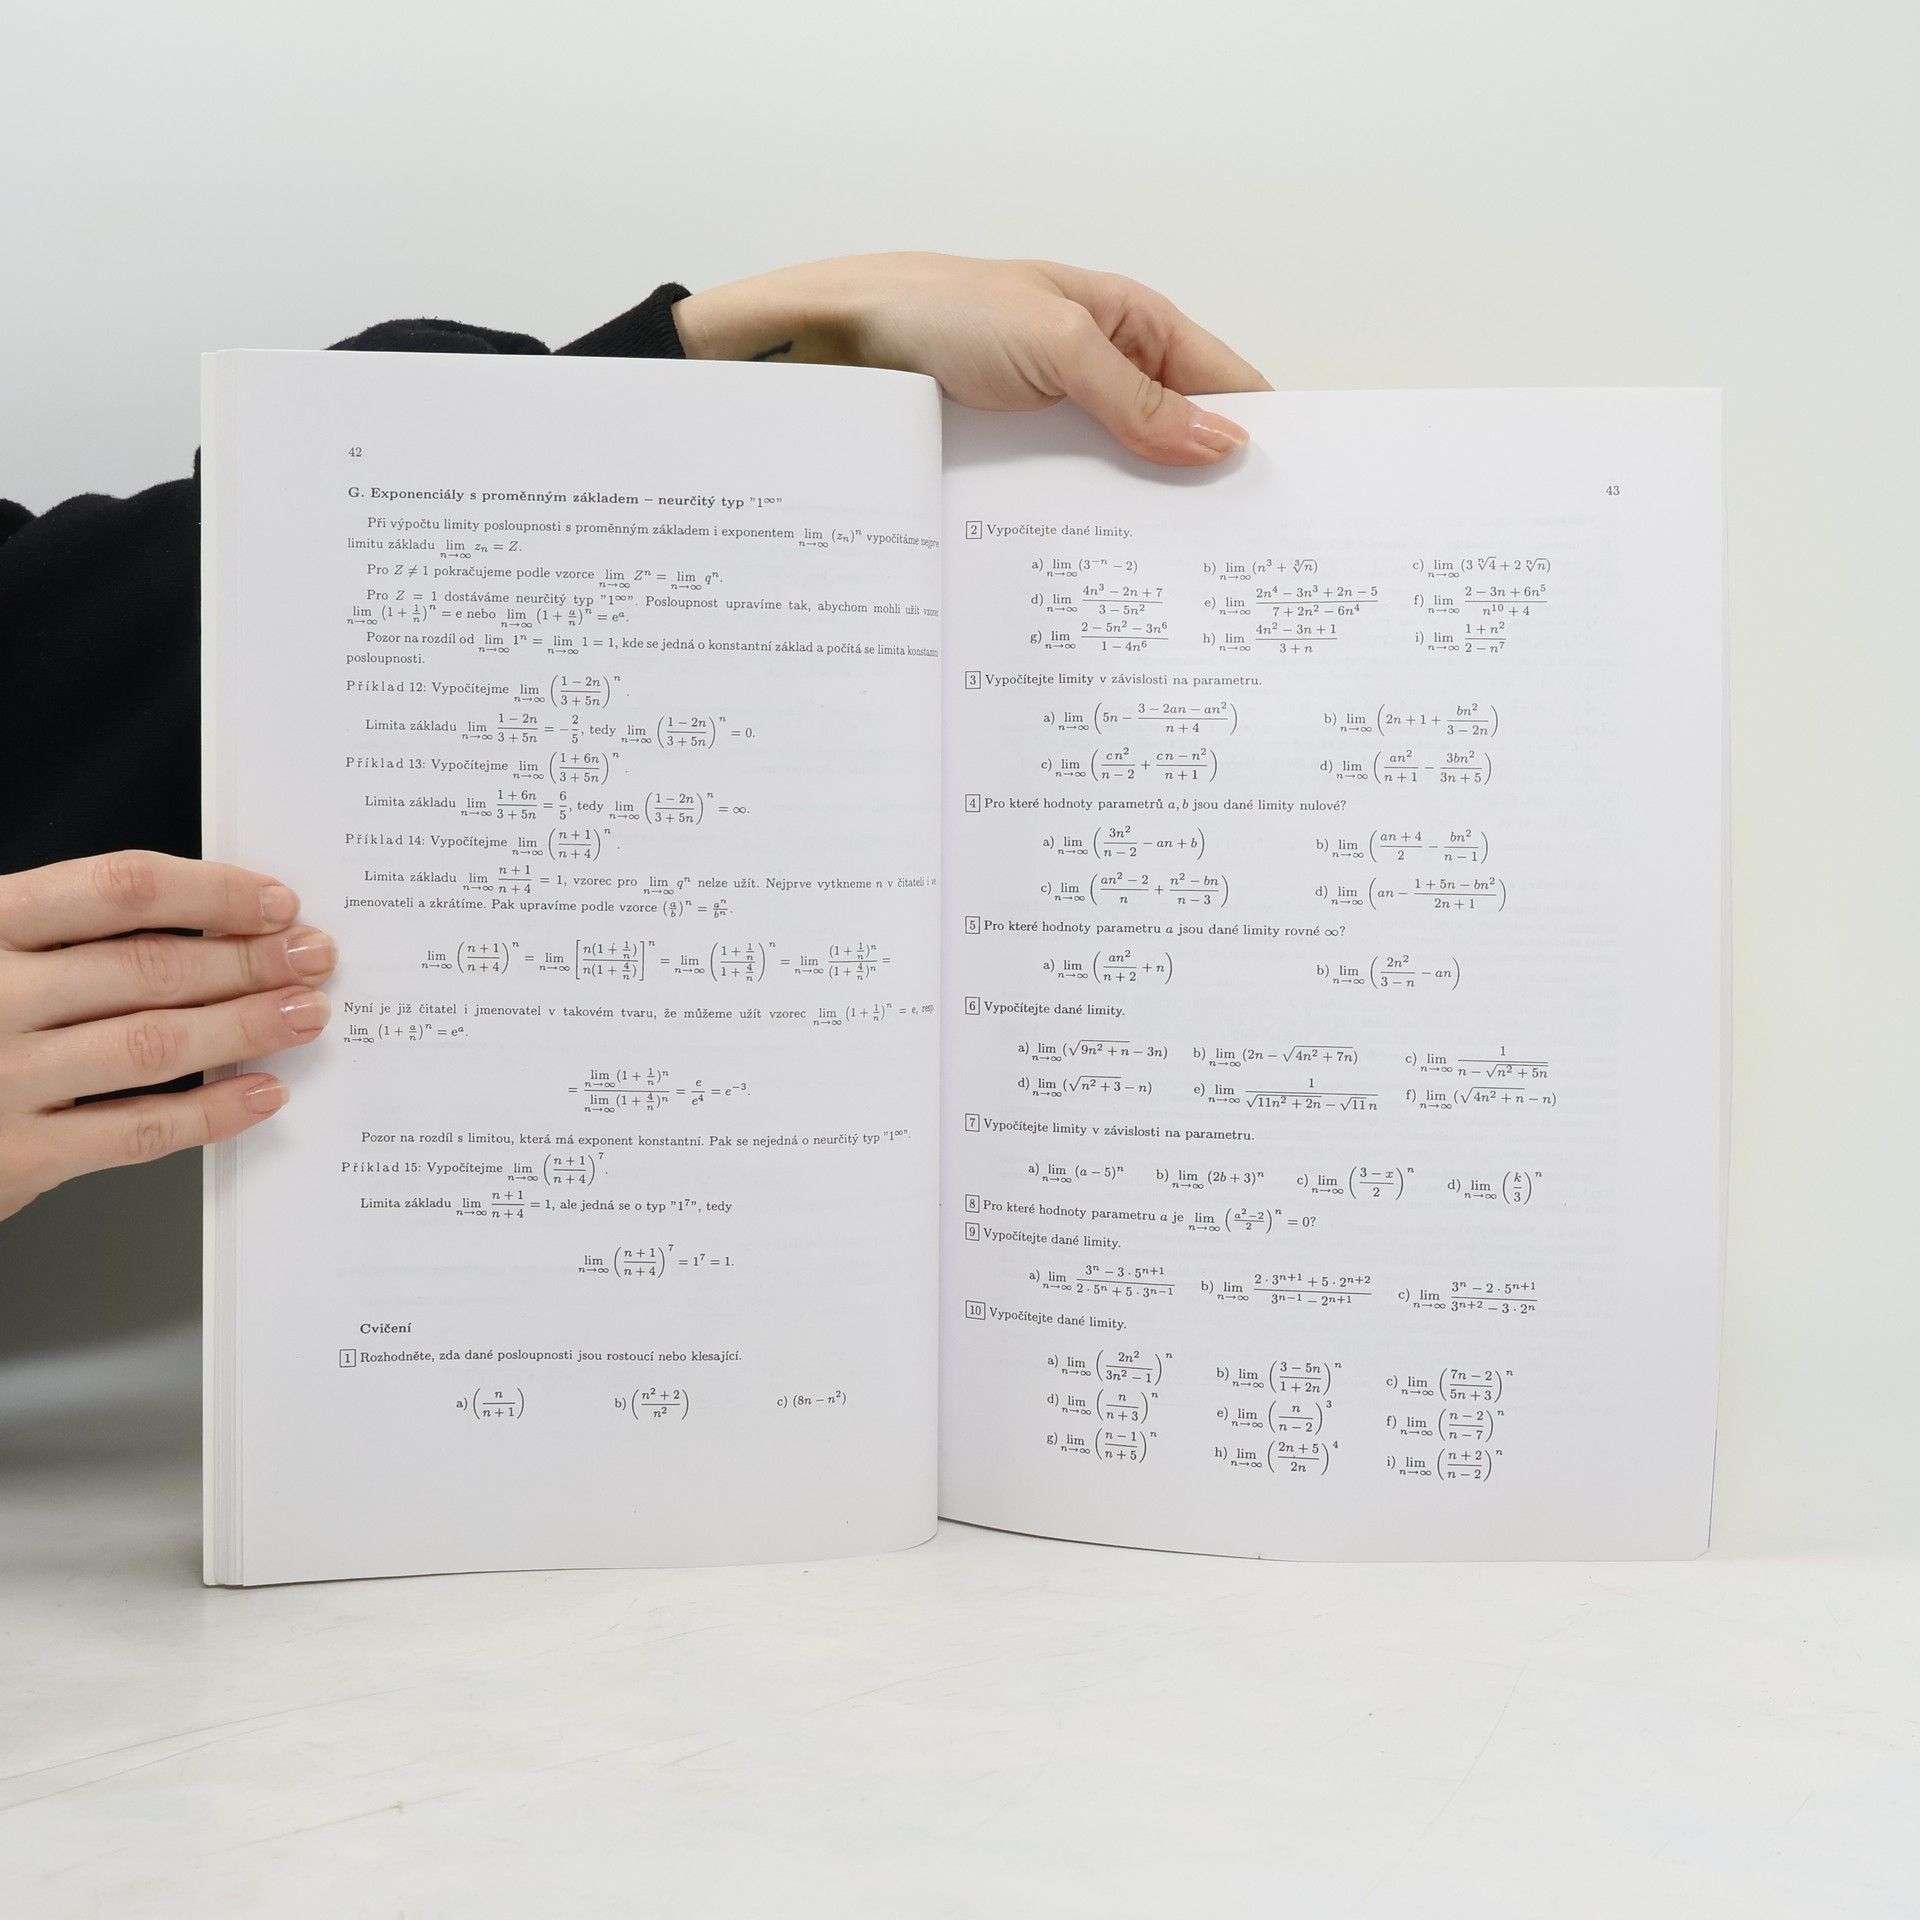 42
G. Exponenciály s proměnným základem – neurčitý typ "1^∞"
Při výpočtu limity posloupnosti s proměnným základem i exponentem lim_{n→∞} (z_n)^n vypočítáme nejprve
limitu základu lim_{n→∞} z_n = Z.
Pro Z ≠ 1 pokračujeme podle vzorce lim_{n→∞} Z^n = lim_{n→∞} q^n.
Pro Z = 1 dostáváme neurčitý typ "1^∞". Posloupnost upravíme tak, abychom mohli užít vzorec
lim_{n→∞} (1 + 1/n)^n = e nebo lim_{n→∞} (1 + a/n)^n = e^a.
Pozor na rozdíl od lim_{n→∞} 1^n = lim_{n→∞} 1 = 1, kde se jedná o konstantní základ a počítá se limita konstantní
posloupnosti.
Příklad 12: Vypočítejme lim_{n→∞} ((1 − 2n)/(3 + 5n))^n.
Limita základu lim_{n→∞} (1 − 2n)/(3 + 5n) = −2/5, tedy lim_{n→∞} ((1 − 2n)/(3 + 5n))^n = 0.
Příklad 13: Vypočítejme lim_{n→∞} ((1 + 6n)/(3 + 5n))^n.
Limita základu lim_{n→∞} (1 + 6n)/(3 + 5n) = 6/5, tedy lim_{n→∞} ((1 − 2n)/(3 + 5n))^n = ∞.
Příklad 14: Vypočítejme lim_{n→∞} ((n + 1)/(n + 4))^n.
Limita základu lim_{n→∞} (n + 1)/(n + 4) = 1, vzorec pro lim_{n→∞} q^n nelze užít. Nejprve vytkneme n v čitateli i ve
jmenovateli a zkrátíme. Pak upravíme podle vzorce (a/b)^n = a^n/b^n.
lim_{n→∞} ((n + 1)/(n + 4))^n = lim_{n→∞} [n(1 + 1/n)/n(1 + 4/n)]^n = lim_{n→∞} ((1 + 1/n)/(1 + 4/n))^n = lim_{n→∞} (1 + 1/n)^n/(1 + 4/n)^n =
Nyní je již čitatel i jmenovatel v takovém tvaru, že můžeme užít vzorec lim_{n→∞} (1 + 1/n)^n = e, resp.
lim_{n→∞} (1 + a/n)^n = e^a.
= lim_{n→∞} (1 + 1/n)^n / lim_{n→∞} (1 + 4/n)^n = e/e^4 = e^{−3}.
Pozor na rozdíl s limitou, která má exponent konstantní. Pak se nejedná o neurčitý typ "1^∞".
Příklad 15: Vypočítejme lim_{n→∞} ((n + 1)/(n + 4))^7.
Limita základu lim_{n→∞} (n + 1)/(n + 4) = 1, ale jedná se o typ "1^7", tedy
lim_{n→∞} ((n + 1)/(n + 4))^7 = 1^7 = 1.
Cvičení
1 Rozhodněte, zda dané posloupnosti jsou rostoucí nebo klesající.
a) (n/(n + 1)) b) ((n^2 + 2)/n^2) c) (8n − n^2)
43
2 Vypočítejte dané limity.
a) lim_{n→∞} (3^{−n} − 2) b) lim_{n→∞} (n^3 + ∛n) c) lim_{n→∞} (3 ⁿ√4 + 2 ⁿ√n)
d) lim_{n→∞} (4n^3 − 2n + 7)/(3 − 5n^2) e) lim_{n→∞} (2n^4 − 3n^3 + 2n − 5)/(7 + 2n^2 − 6n^4) f) lim_{n→∞} (2 − 3n + 6n^5)/(n^10 + 4)
g) lim_{n→∞} (2 − 5n^2 − 3n^6)/(1 − 4n^6) h) lim_{n→∞} (4n^2 − 3n + 1)/(3 + n) i) lim_{n→∞} (1 + n^2)/(2 − n^7)
3 Vypočítejte limity v závislosti na parametru.
a) lim_{n→∞} (5n − (3 − 2an − an^2)/(n + 4)) b) lim_{n→∞} (2n + 1 + bn^2/(3 − 2n))
c) lim_{n→∞} (cn^2/(n − 2) + (cn − n^2)/(n + 1)) d) lim_{n→∞} (an^2/(n + 1) − 3bn^2/(3n + 5))
4 Pro které hodnoty parametrů a, b jsou dané limity nulové?
a) lim_{n→∞} (3n^2/(n − 2) − an + b) b) lim_{n→∞} ((an + 4)/2 − bn^2/(n − 1))
c) lim_{n→∞} ((an^2 − 2)/n + (n^2 − bn)/(n − 3)) d) lim_{n→∞} (an − (1 + 5n − bn^2)/(2n + 1))
5 Pro které hodnoty parametru a jsou dané limity rovné ∞?
a) lim_{n→∞} (an^2/(n + 2) + n) b) lim_{n→∞} (2n^2/(3 − n) − an)
6 Vypočítejte dané limity.
a) lim_{n→∞} (√(9n^2 + n) − 3n) b) lim_{n→∞} (2n − √(4n^2 + 7n)) c) lim_{n→∞} 1/(n − √(n^2 + 5n))
d) lim_{n→∞} (√(n^2 + 3) − n) e) lim_{n→∞} 1/(√(11n^2 + 2n) − √11 n) f) lim_{n→∞} (√(4n^2 + n) − n)
7 Vypočítejte limity v závislosti na parametru.
a) lim_{n→∞} (a − 5)^n b) lim_{n→∞} (2b + 3)^n c) lim_{n→∞} ((3 − x)/2)^n d) lim_{n→∞} (k/3)^n
8 Pro které hodnoty parametru a je lim_{n→∞} ((a^2−2)/2)^n = 0?
9 Vypočítejte dané limity.
a) lim_{n→∞} (3^n − 3 · 5^{n+1})/(2 · 5^n + 5 · 3^{n−1}) b) lim_{n→∞} (2 · 3^{n+1} + 5 · 2^{n+2})/(3^{n−1} − 2^{n+1}) c) lim_{n→∞} (3^n − 2 · 5^{n+1})/(3^{n+2} − 3 · 2^n)
10 Vypočítejte dané limity.
a) lim_{n→∞} (2n^2/(3n^2 − 1))^n b) lim_{n→∞} ((3 − 5n)/(1 + 2n))^n c) lim_{n→∞} ((7n − 2)/(5n + 3))^n
d) lim_{n→∞} (n/(n + 3))^n e) lim_{n→∞} (n/(n − 2))^3 f) lim_{n→∞} ((n − 2)/(n − 7))^n
g) lim_{n→∞} ((n − 1)/(n + 5))^n h) lim_{n→∞} ((2n + 5)/2n)^4 i) lim_{n→∞} ((n + 2)/(n − 2))^n